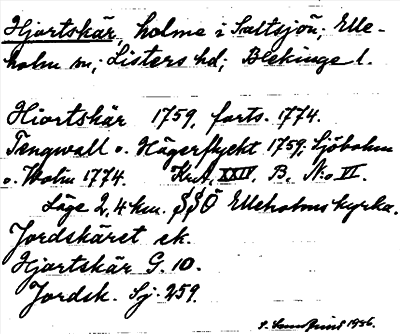 Hjortskär, holme i Saltsjön; Elle-
holm sn; Listers hd; Blekinge l.
Hiortskär 1759, forts. 1774.
Tengwall o. Hägerflyckt 1759; Sjöbohm
o. Wolin 1774. Krt. XXIV. B. No VI.
Läge 2,4 km. SSÖ Elleholms kyrka.
Jordskäret ek.
Hjortskär G. 10.
Jordsk. Sj. 259.
1936.